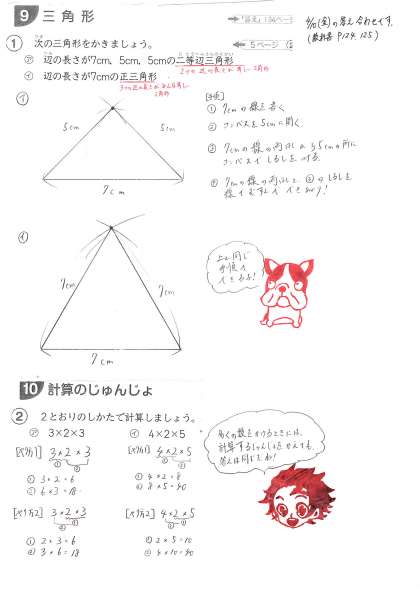 9 三角形
→「答え」134ページ
4/10(金)の答え合わせです。
(教科書 P124.125)
1 次の三角形をかきましょう。
← 5ページ
㋐ 辺の長さが7cm、5cm、5cmの二等辺三角形
2つの辺の長さが等しい三角形
㋑ 辺の長さが7cmの正三角形
3つの辺の長さがみんな等しい
三角形
㋐
5cm 5cm
7cm
[手順]
① 7cmの線を書く
② コンパスを5cmに開く
③ 7cmの線の両はしから5cmの所に
コンパスでしるしをつける。
④ 7cmの線の両はしと、③のしるしを
線でむすんでできあがり!
㋑
7cm 7cm
7cm
上と同じ
手順で
できるよ!
10 計算のじゅんじょ
2 2とおりのしかたで計算しましょう。
㋐ 3×2×3 ㋑ 4×2×5
[やり方1] 3×2×3
① ②
① 3×2=6
② 6×3=18
[やり方1] 4×2×5
① ②
① 4×2=8
② 8×5=40
[やり方2] 3×2×3
① 2×3=6
② 3×6=18
[やり方2] 4×2×5
① 2×5=10
② 4×10=40
多くの数をかけるときには、
計算するじゅんじょをかえても、
答えは同じだね!